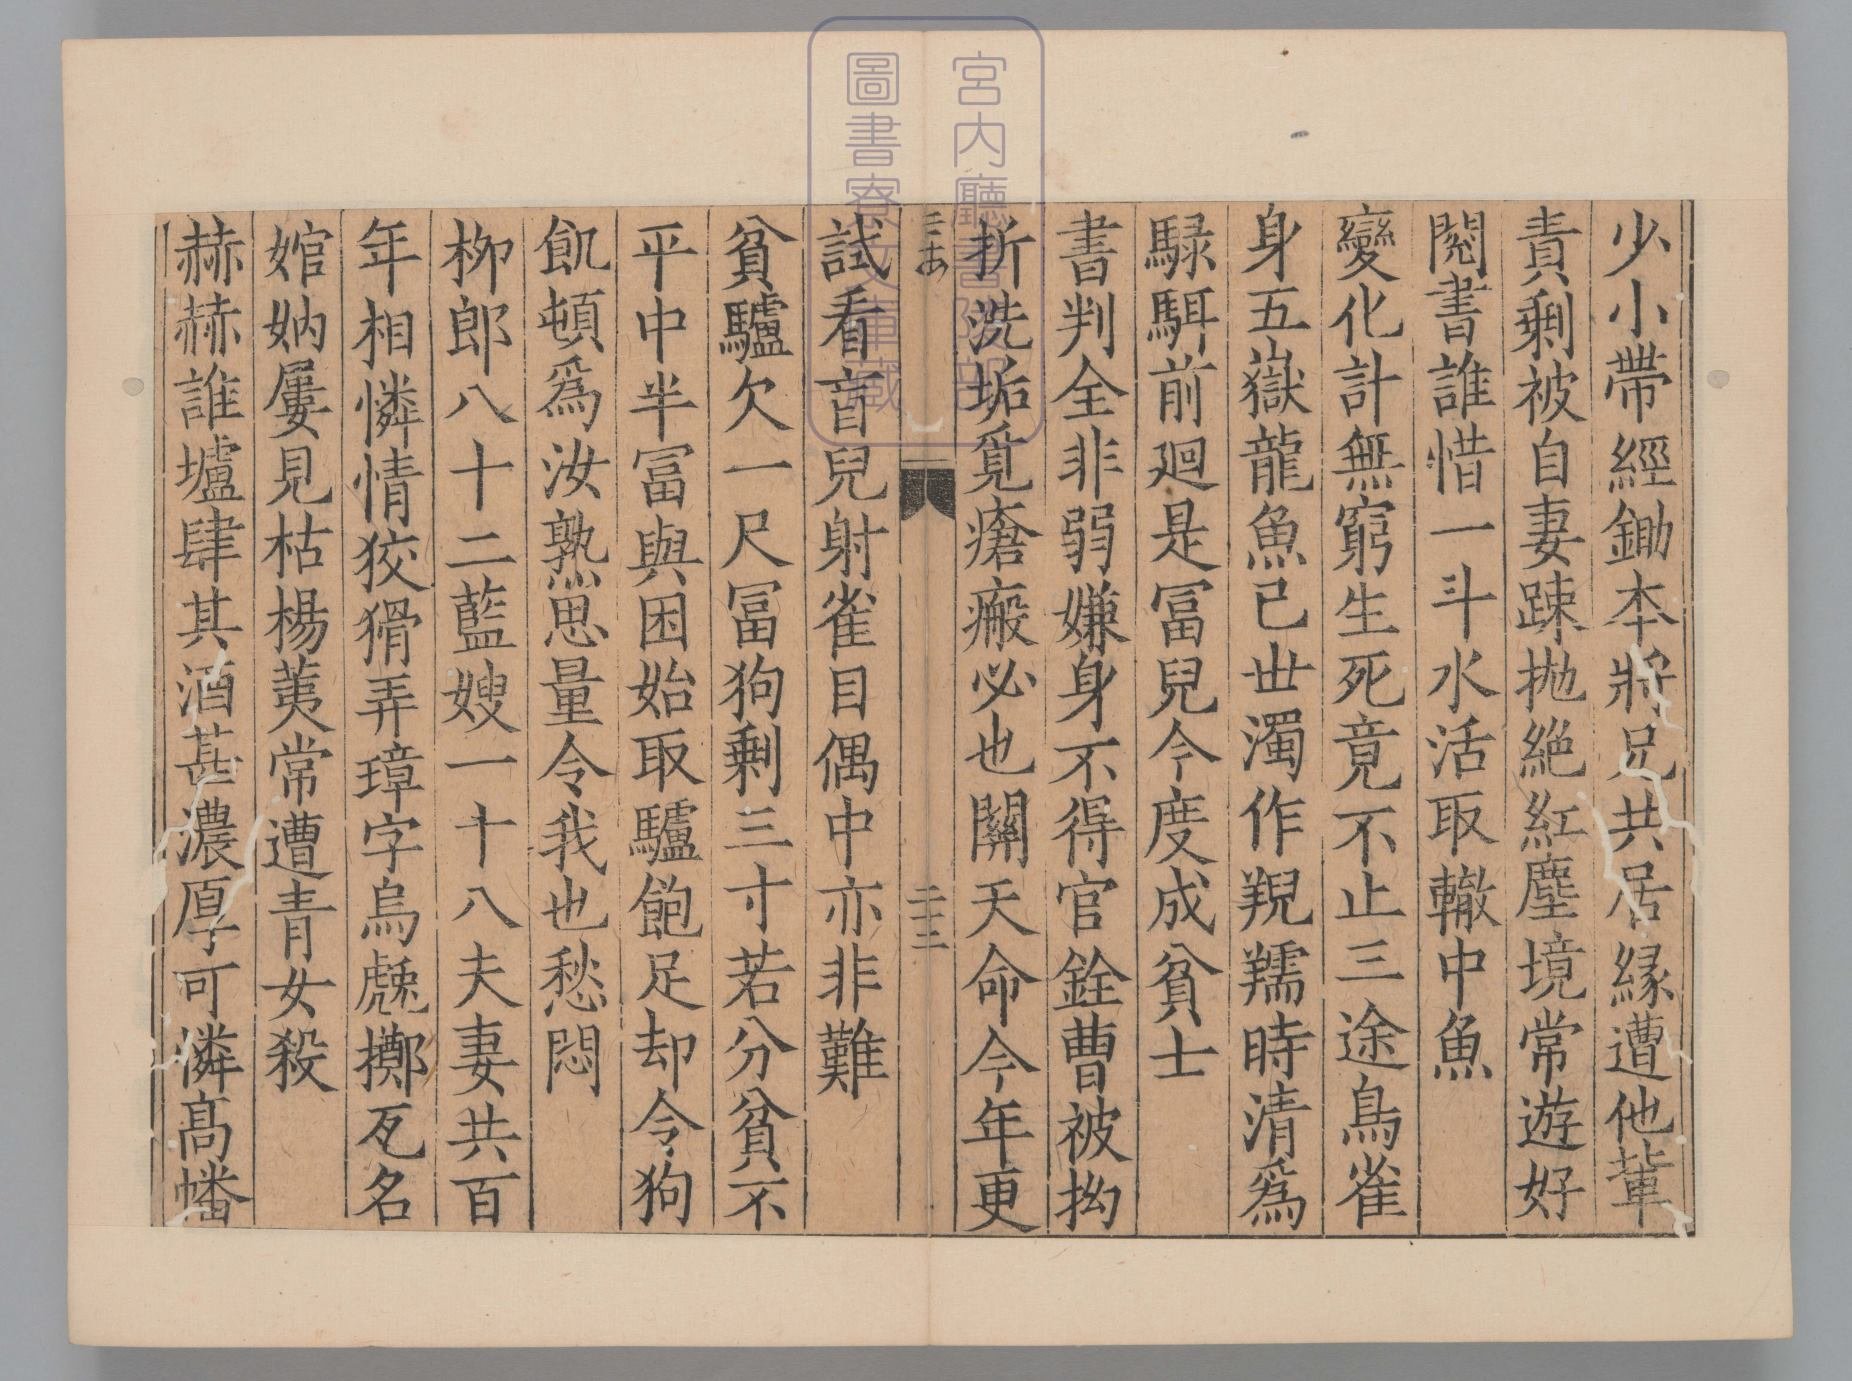 少小帶經鋤本將兄共居緣遭他輩
責剩被自妻踈抛絶紅塵境常遊好
閱書誰惜一斗水活取轍中魚
變化計無窮生死竟不止三途鳥雀
身五嶽龍魚已世濁作䍲羺時清爲
騄駬前廻是冨兒今度成貧士
書判全非弱嫌身不得官銓曹被拗
折洗垢覓瘡瘢必也關天命今年更
試看盲兒射雀目偶中亦非難
貧驢欠一尺冨狗剩三寸若分貧不
平中半冨與困始取驢飽足却令狗
飢頓爲汝熟思量令我也愁悶
柳郎八十二藍嫂一十八夫妻共百
年相憐情狡猾弄璋字烏𧆞擲瓦名
婠妠屢見枯楊荑常遭青女殺
赫赫誰壚肆其酒甚濃厚可憐髙幡
二三
宮内廳書陵部
圖書寮文庫藏